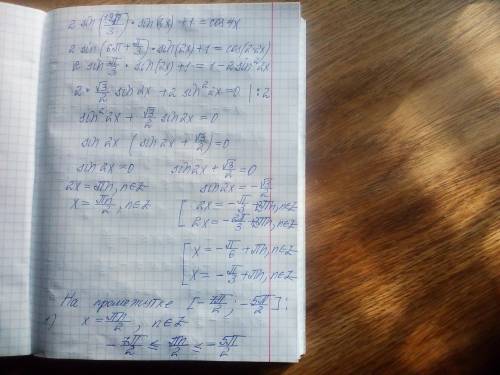 2 sin(19π/3) · sin(2x) + 1 = cos 4x
2 sin(6π + π/3) · sin(2x) + 1 = cos(2·2x)
2 sin π/3 · sin(2x) + 1 = 1 - 2 sin² 2x
2 · √3/2 sin 2x + 2 sin² 2x = 0 | : 2
sin² 2x + √3/2 sin 2x = 0
sin 2x (sin 2x + √3/2) = 0
sin 2x = 0 sin 2x + √3/2 = 0
2x = πn, n∈Z sin 2x = -√3/2
x = πn/2, n∈Z [ 2x = -π/3 + 2πn, n∈Z
2x = -2π/3 + 2πn, n∈Z
[ x = -π/6 + πn, n∈Z
x = -π/3 + πn, n∈Z
На промежутке [-7π/2; -5π/2]:
1) x = πn/2, n∈Z
-7π/2 ≤ πn/2 ≤ -5π/2